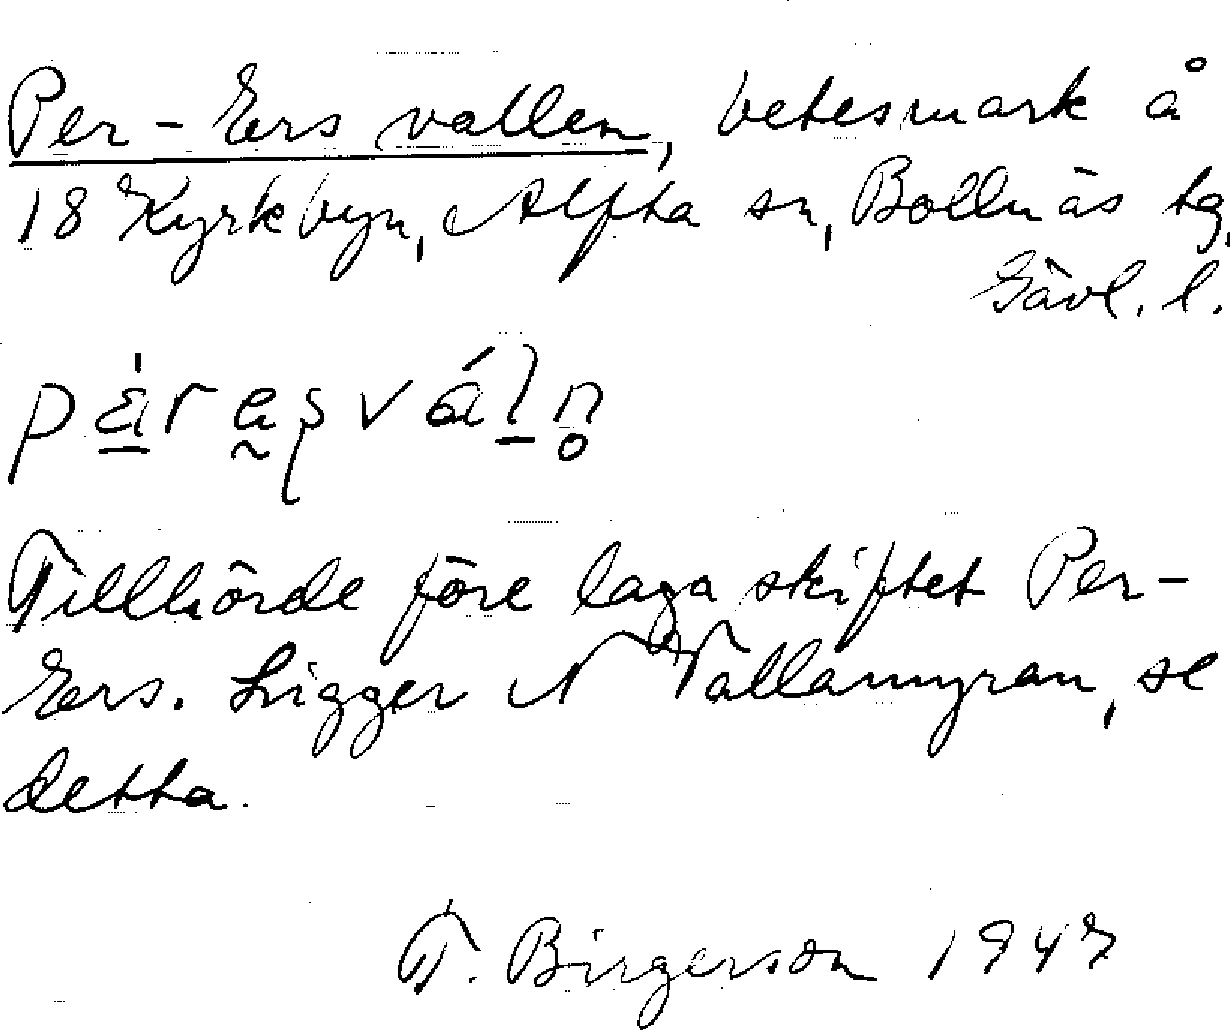 Per-Ers vallen, betesmark å
18 Kyrkbyn, Alfta sn, Bollnäs tg,
Gävl. l.
Tillhörde före laga skiftet Per-
Ers. Ligger N Tallamyran, se
detta.
T. Birgerson 1947